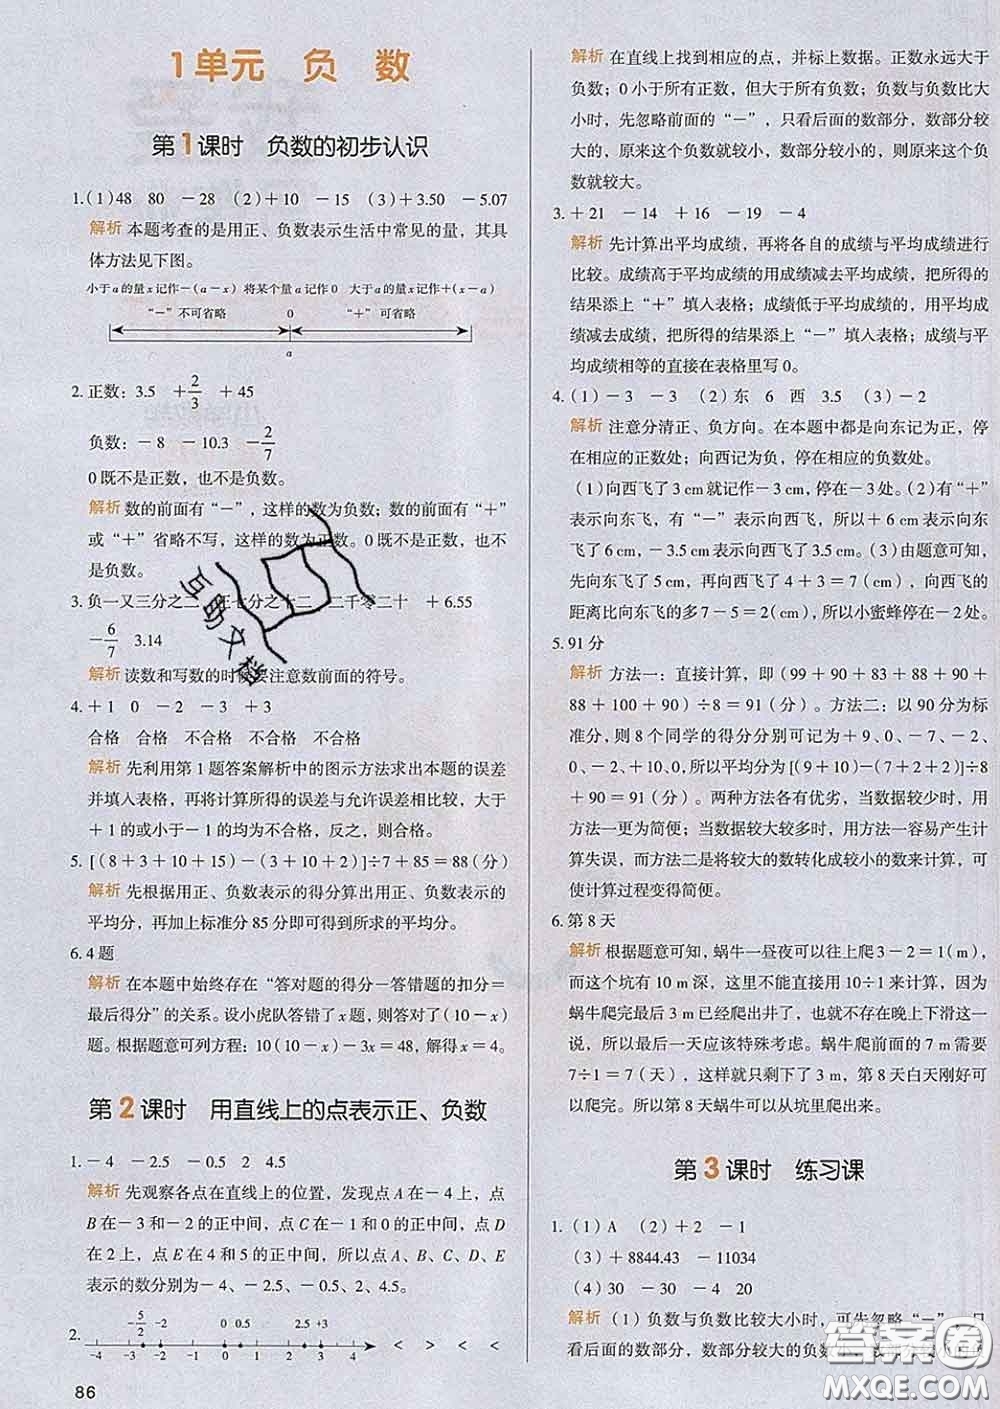 1单元 负 数
第1课时 负数的初步认识
1.(1)48 80 －28 (2)＋10 －15 (3)＋3.50 －5.07
解析 本题考查的是用正、负数表示生活中常见的量，其具
体方法见下图。
小于a的量x记作－(a－x) 将某个量a记作0 大于a的量x记作＋(x－a)
“－”不可省略 0 “＋”可省略
a
2. 正数：3.5 ＋2/3 ＋45
负数：－8 －10.3 －2/7
0既不是正数，也不是负数。
解析 数的前面有“－”，这样的数为负数；数的前面有“＋”
或“＋”省略不写，这样的数为正数。0既不是正数，也不
是负数。
3. 负一又三分之二 正七分之十二 二千零二十 ＋6.55
－6/7 3.14
解析 读数和写数的时候要注意数前面的符号。
4. ＋1 0 －2 －3 ＋3
合格 合格 不合格 不合格 不合格
解析 先利用第1题答案解析中的图示方法求出本题的误差
并填入表格，再将计算所得的误差与允许误差相比较，大于
＋1的或小于－1的均为不合格，反之，则合格。
5. [(8＋3＋10＋15)－(3＋10＋2)]÷7＋85＝88(分)
解析 先根据用正、负数表示的得分算出用正、负数表示的
平均分，再加上标准分85分即可得到所求的平均分。
6. 4题
解析 在本题中始终存在“答对题的得分－答错题的扣分＝
最后得分”的关系。设小虎队答错了x题，则答对了(10－x)
题。根据题意可列方程：10(10－x)－3x＝48，解得x＝4。
第2课时 用直线上的点表示正、负数
1. －4 －2.5 －0.5 2 4.5
解析 先观察各点在直线上的位置，发现点A在－4上，点
B在－3和－2的正中间，点C在－1和0的正中间，点D
在2上，点E在4和5的正中间，所以点A、B、C、D、E
表示的数分别为－4、－2.5、－0.5、2、4.5。
－5/2 －2 0 0.5 2.5 ＋3
2. ＜ ＜ ＞ ＞
-4 -3 -2 -1 0 1 2 3 4
86
解析 在直线上找到相应的点，并标上数据。正数永远大于
负数；0小于所有正数，但大于所有负数；负数与负数比大
小时，先忽略前面的“－”，只看后面的数部分，数部分较
大的，原来这个负数就较小，数部分较小的，则原来这个负
数就较大。
3. ＋21 －14 ＋16 －19 －4
解析 先计算出平均成绩，再将各自的成绩与平均成绩进行
比较。成绩高于平均成绩的用成绩减去平均成绩，把所得的
结果添上“＋”填入表格；成绩低于平均成绩的，用平均成
绩减去成绩，把所得的结果添上“－”填入表格；成绩与平
均成绩相等的直接在表格里写0。
4. (1)－3 －3 (2)东 6 西 3.5 (3)－2
解析 注意分清正、负方向。在本题中都是向东记为正，停
在相应的正数处；向西记为负，停在相应的负数处。
(1)向西飞了3 cm就记作－3 cm，停在－3处。(2)有“＋”
表示向东飞，有“－”表示向西飞，所以＋6 cm表示向东
飞了6 cm，－3.5 cm表示向西飞了3.5 cm。(3)由题意可知，
先向东飞了5 cm，再向西飞了4＋3＝7(cm)，这样向西飞的
距离比向东飞的多7－5＝2(cm)，所以小蜜蜂停在－2处。
5. 91分
解析 方法一：直接计算，即(99＋90＋83＋88＋90＋
88＋100＋90)÷8＝91(分)。方法二：以90分为标
准分，则8个同学的得分分别可记为＋9、0、－7、－2、
0、－2、＋10、0，所以平均分为[(9＋10)－(7＋2＋2)]÷8
＋90＝91(分)。两种方法各有优劣，当数据较少时，用
方法一更为简便；当数据较大较多时，用方法一容易产生计
算失误，而方法二是将较大的数转化成较小的数来计算，可
使计算过程变得简便。
6. 第8天
解析 根据题意可知，蜗牛一昼夜可以往上爬3－2＝1(m)，
而这个坑有10 m深，这里不能直接用10÷1来计算。因为
蜗牛爬完最后3 m已经爬出井了，也就不存在晚上下滑这一
说，所以最后一天应该特殊考虑。蜗牛爬前面的7 m需要
7÷1＝7(天)，这样就只剩下了3 m，第8天白天刚好可
以爬完。所以第8天蜗牛可以从坑里爬出来。
第3课时 练习课
1. (1)A (2)＋2 －1
(3)＋8844.43 －11034
(4)30 －30 －4 20
解析 (1)负数与负数比较大小时，可先忽略“－”，只
看后面的数部分，数部分较大的负数
互助文档
答案圈
MXQE.COM